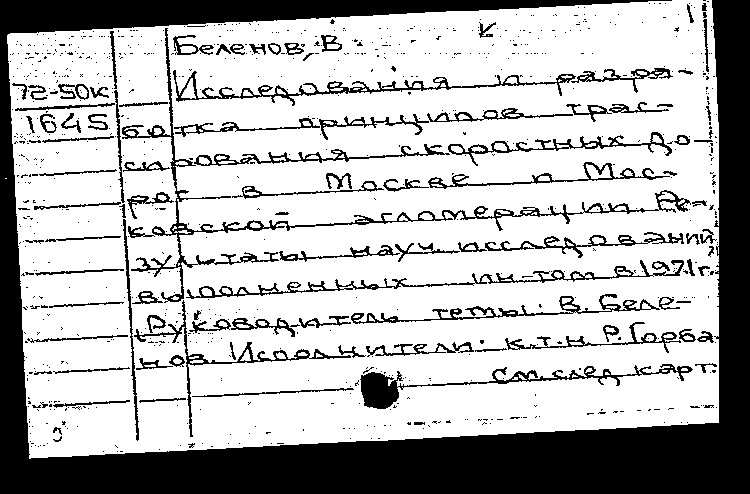 1
Беленов, В
72-50к Исследования и разра-
1645 ботка принципов трас-
сирования скоростных до
рог в Москве и Мос-
ковской агломерации. Ре-
зультаты науч. исследований
выполненных ин-том в 1971г.
Руководитель темы: В. Беле-
нов. Исполнители: к.т.н. Р. Горба
См. след карт.